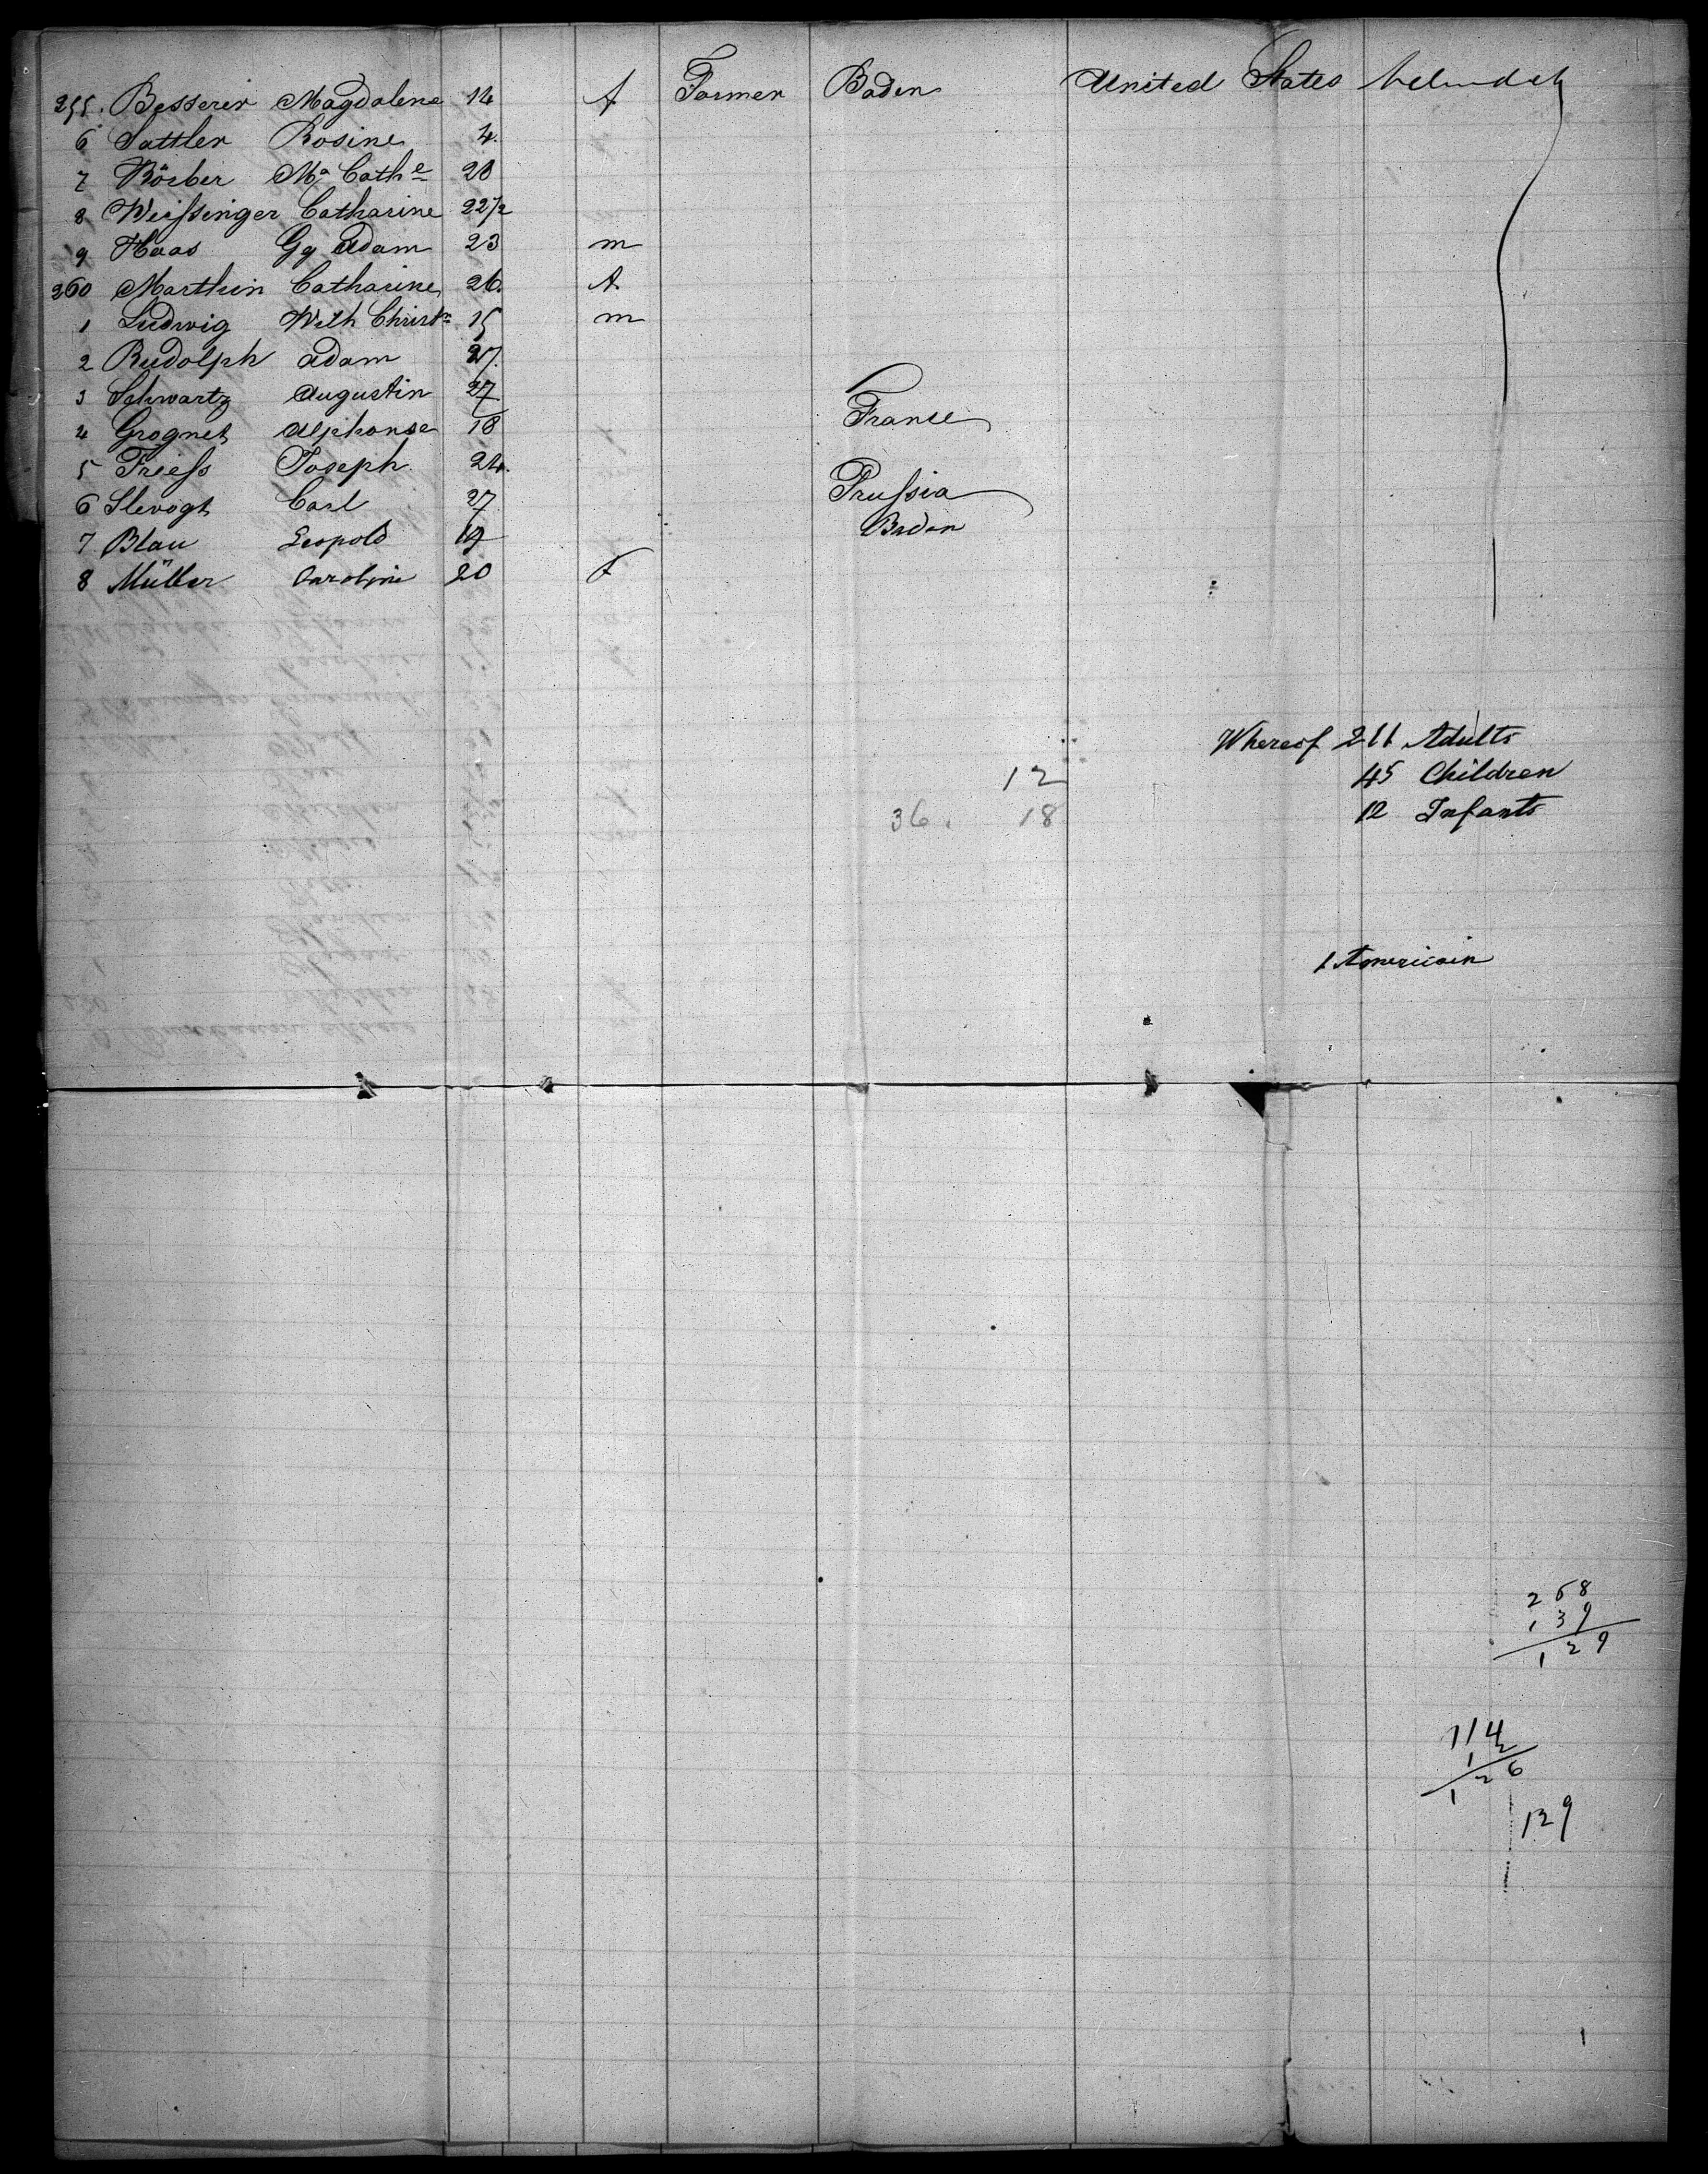 255. Besserer Magdalene 14 f Farmer Baden United States
6 Sattler Rosine 4.
7 Körber Ma Cathe 20
8 Weißinger Catharine 22/2
9 Haas Gg Adam 23 m
260 Marthin Catharine 26. f.
1 Ludwig Wilh Christn 15 m
2 Rudolph Adam 27.
3 Schwartz Augustin 27
4 Grognet Alphonse 18 France
5 Frieß Joseph. 24.
6 Slevogt Carl 27 Prußia
7 Blau Leopold 19 Baden
8 Müller Caroline 20 f
Whereof 211 Adults
12 45 Children
36. 18 12 Infants
1 Americain
268
139
129
114
12
126
129